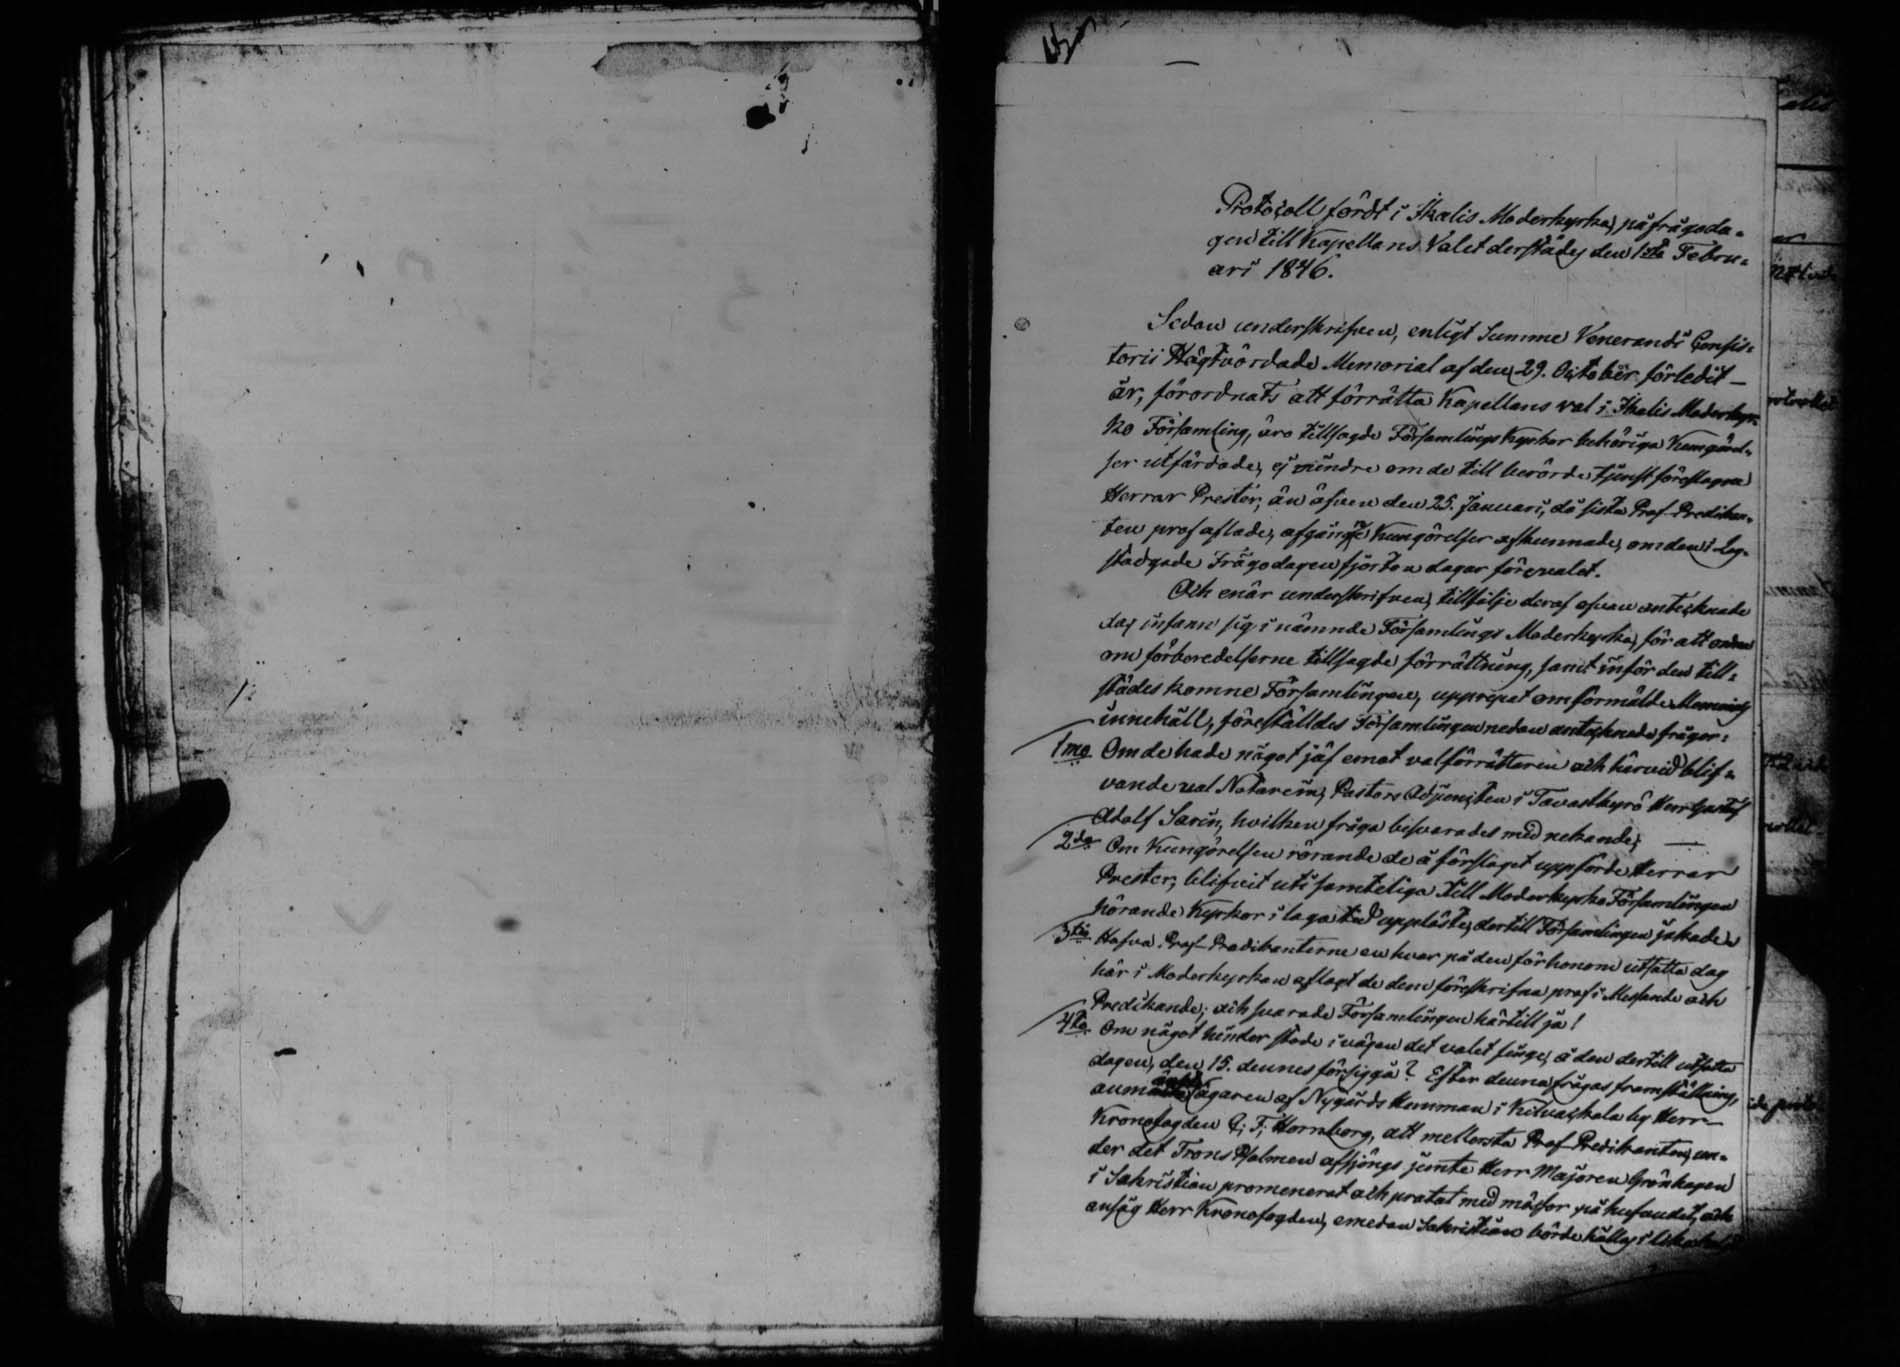 Protocoll, fördt i Ikalis Moderkyrka, på frågoda-
gen till Kapellans Valet derstädes den 1sta Febru-
ari 1846.
Sedan underskrifven, enligt Summe Venerandi Consis-
torii Högtvördade Memorial af den 29. October förledit
år, förordnats att förrätta Kapellans val i Ikalis Moderkyr-
ko Församling, äro tillsagde Församlings Kyrkor behöriga Kungörel-
ser utfärdade, ej mindre om de till berörde tjenst föreslagna
Herrar Prester, än äfven den 25. Januari, då sista Prof-Predikan-
ten prof aflade, afgångne Kungörelser afkunnade, om den i Lag
stadgade Frågodagen fjorton dagar före valet.
Och enär underskrifven, tillfölje deraf ofvan antecknade
dag infann sig i nämnde Församlings Moderkyrka, för att
om förberedelserne tillsagde förrättning, samt inför den till-
städes komne Församlingen, uppräpat omförmälde
innehåll, föreställdes Församlingen nedan antecknade frågor:
1mo Om de hade något jäf emot valförrättaren och härvid blif-
vande val Notarien, Pastors Adjuncten i Tavastkyrö Herr Gustaf
Adolf Sarin, hvilken fråga besvarades med nekande;
2do Om Kungörelsen rörande de å förslaget uppförde Herrar
Prester, blifvit uti samteliga till Moderkyrko Församlingen
hörande Kyrkor i laga tid uppläste, dertill Församlingen jakade.
3tio Hafva Prof-Predikanterne en hvar på den för honom utsatta dag
här i Moderkyrkan aflagt de dem föreskrifna prof i Messande och
Predikande; och svarade Församlingen härtill ja!
4to Om något hinder stode i vägen det valet finge, å den dertill utsatta
dagen, den 15. dennes försiggå? Efter denna frågas framställning,
anmälte ägaren af Nygårds Hemman i Kilvackala by Herr
Kronofogden C. F. Hornborg, att mellersta Prof-Predikanten, un-
der det Trons Psalmen afsjöngs jemte Herr Majoren Grönhagen
i Sakristian promenerat och pratat med mössor på hufvudet, och
ansåg Herr Kronofogden, emedan Sakristian börde hållas i